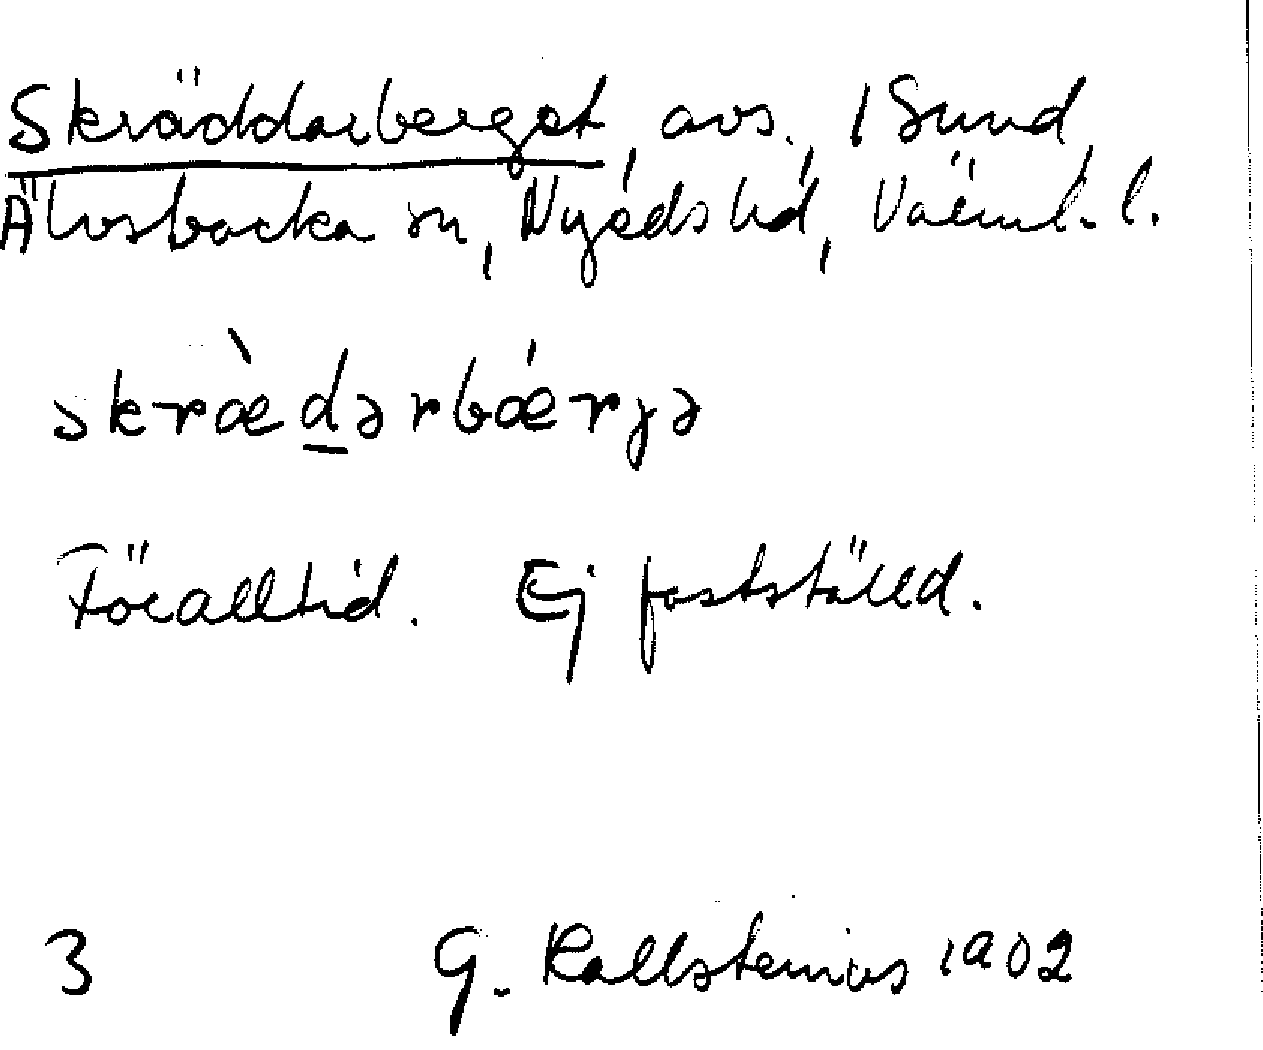 Skräddarberget, avs. i Sund,
Älvsbacka sn, Nyeds hd, Värml. l.
skræ̀dərbǽrjə
Föralltid. Ej fastställd.
3 G. Kallstenius 1902